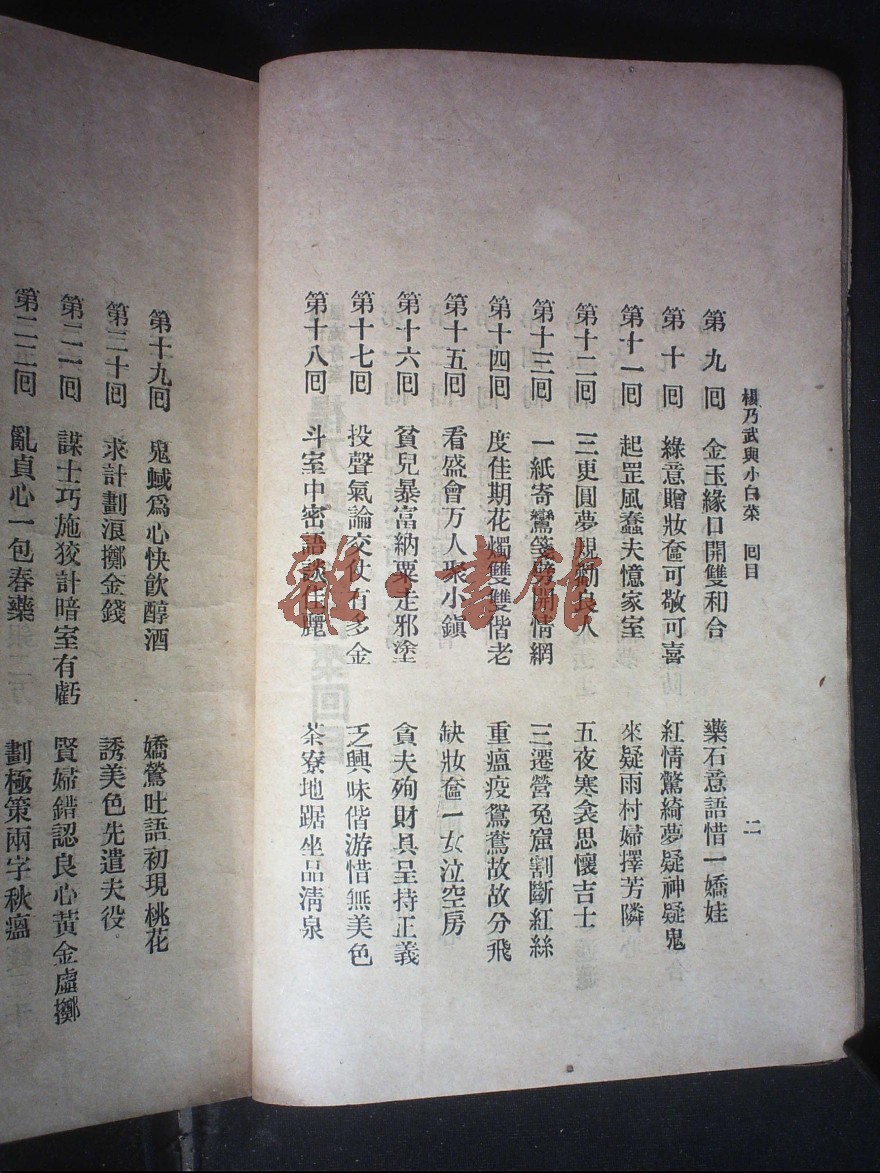 楊乃武與小白菜 回目
二
第九回 金玉緣口開雙和合 藥石意語惜一嬌娃
第十回 綠意贈妝奩可敬可喜 紅情驚綺夢疑神疑鬼
第十一回 起罡風蠢夫憶家室 來疑雨村婦擇芳隣
第十二回 三更圓夢規勸良人 五夜寒衾思懷吉士
第十三回 一紙寄鸞箋劈開情網 三遷營兔窟割斷紅絲
第十四回 度佳期花燭雙雙偕老 重瘟疫鴛鴦故故分飛
第十五回 看盛會万人聚小鎭 缺妝奩一女泣空房
第十六回 貧兒暴富納粟走邪塗 貪夫殉財具呈持正義
第十七回 投聲氣論交仗有多金 乏興味偕游惜無美色
第十八回 斗室中密語談佳麗 茶寮地踞坐品淸泉
第十九回 鬼蜮爲心快飮醇酒 嬌鶯吐語初現桃花
第二十回 求計劃浪擲金錢 誘美色先遣夫役
第二一回 謀士巧施狡計暗室有虧 賢婦錯認良心黃金虛擲
第二二回 亂貞心一包春藥 劃極策兩字秋瘟
雜·書館